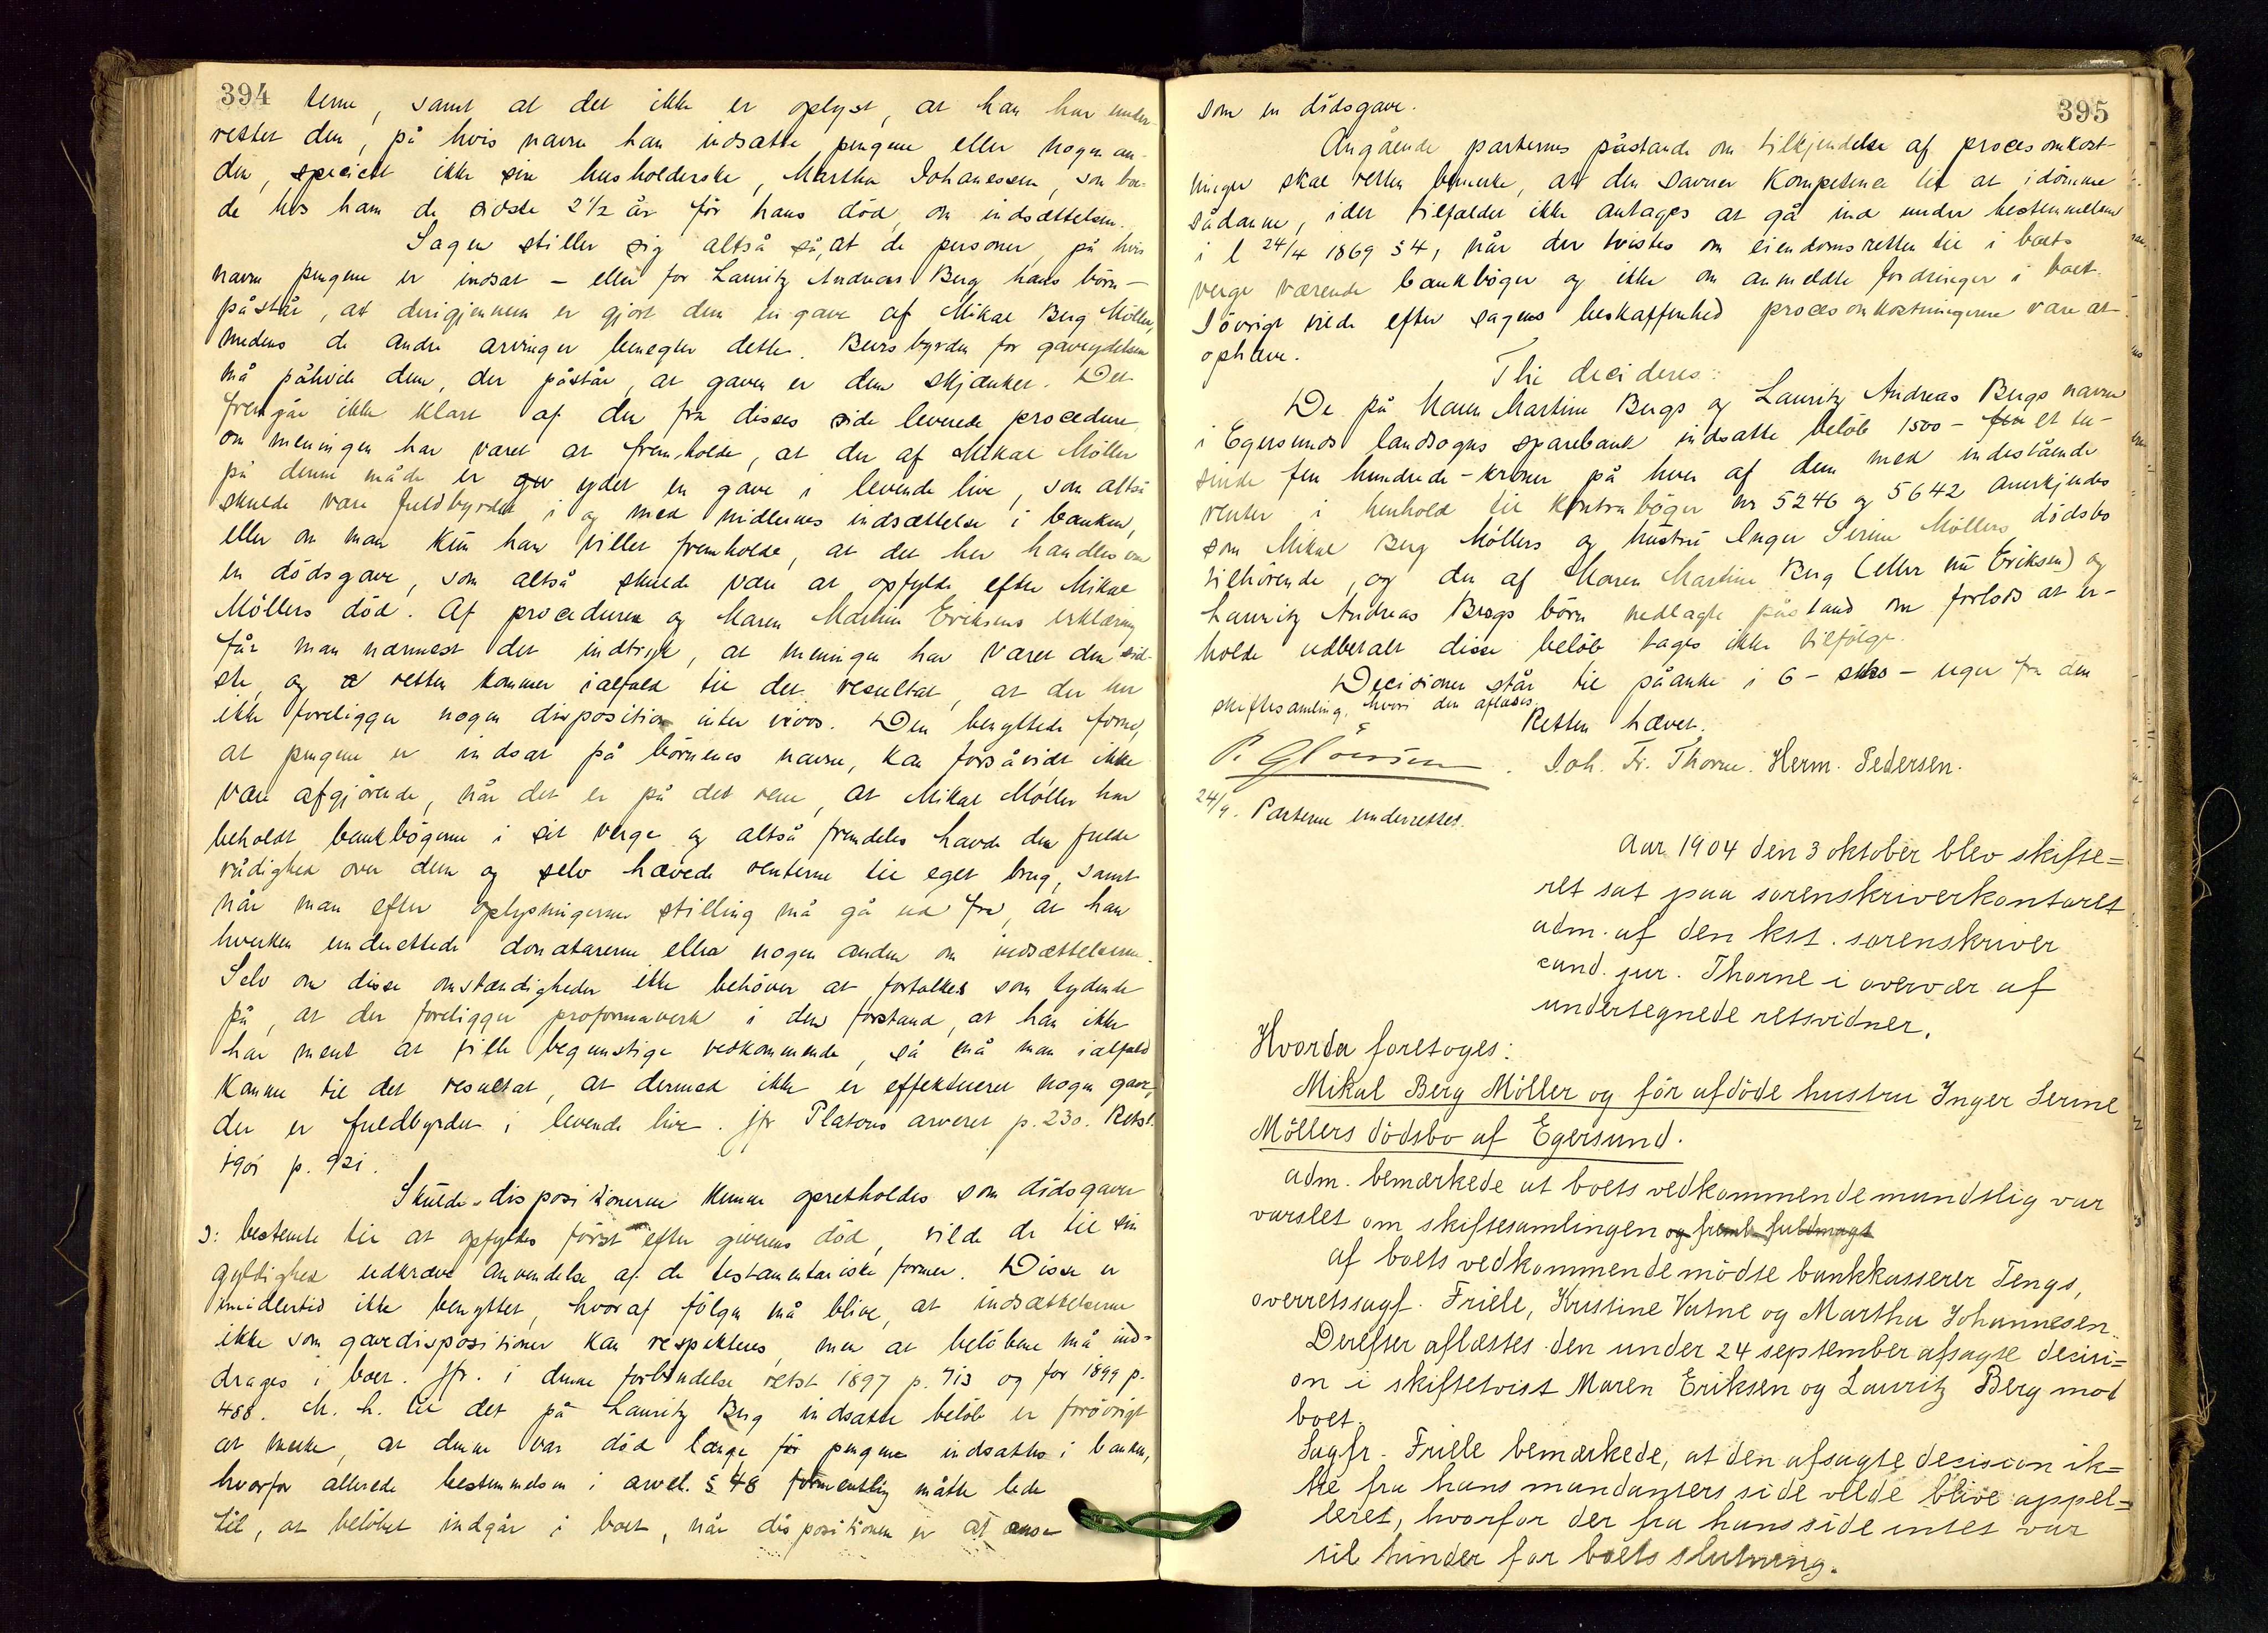 394
terne, samt at det ikke er oplyst, at han har under-
rettet dem, på hvis navn han indsatte pengene eller nogen an-
den, specielt ikke sin husholderske, Martha Johanessen, som bo-
de hos ham de sidste 2 1/2 år før hans død, om indsættelsen.
Sagen stiller sig altså så, at de personer, på hvis
navn pengene er indsat - eller for Lauritz Andreas Berg hans børn -
påstår, at derigjennem er gjort dem en gave af Mikal Berg Möller,
medens de andre arvinger benegter dette. Bevisbyrden for gaveydelsen
må påhvile dem, der påstår, at gaven er dem skjænket. Det
fremgår ikke klart af den fra disses side leverede procedure,
om meningen har været at fremholde, at der af Mikal Möller
på denne måde er gav ydet en gave i levende live, som altså
skulde være fuldbyrdet i og med midlernes indsættelse i banken,
eller om man kun har villet fremholde, at det her handles om
en dödsgave, som altså skulde være at opfylde efter Mikal
Möllers död. Af proceduren og Maren Martine Eriksens erklæring
får man nærmest det indtryk, at meningen har været den sid-
ste, og retten kommer ialfald til det resultat, at der her
ikke foreligger nogen disposition inter vivos. Den benyttede form,
at pengene er indsat på börnenes navn, kan forsåvidt ikke
være afgjörende, når det er på det rene, at Mikal Möller har
beholdt bankbögerne i sit verge og altså fremdeles havde den fulde
rådighed over dem og selv hævede renterne til eget brug, samt
når man efter oplysningernes stilling må gå ud fra, at han
hverken underrettede donatarerne eller nogen anden om indsættelserne.
Selv om disse omstændigheder ikke behöver at fortolkes som tydende
på, at der foreligger proformaverk i den forstand, at han ikke
har ment at ville begunstige vedkommende, så må man ialfald
komme til det resultat, at dermed ikke er effektueret nogen gave,
der er fuldbyrdet i levende live. Jfr Platous arveret p. 230. Retst.
1901 p. 921.
Skulde dispositionerne kunne opretholdes som dödsgaver
ɔ: bestemte til at opfyldes först efter giverens död, vilde de til sin
gyldighed udkræve anvendelse af de testamentariske former. Disse er
imidlertid ikke benyttet, hvoraf fölgen må blive, at indsættelserne
ikke som gavedispositioner kan respekteres, men at belöbene må ind-
drages i boet. Jfr. i denne forbindelse retst 1897 p. 713 og for 1899 p.
488. M. h. til det på Lauritz Berg indsatte belöb er forövrigt
at merke, at denne var död længe för pengene indsattes i banken,
hvorfor allerede bestemmelsen i arvel. § 48 formentlig måtte lede
til, at belöbet indgår i boet, når dispositionen er at anse
395
som en dödsgave.
Angående parternes påstande om tilkjendelse af procesomkost-
ninger skal retten bemerke, at den savner kompetence til at idömme
sådanne, idet tilfældet ikke antages at gå ind under bestemmelsen
i l 24/4 1869 § 4, når der tvistes om eiendomsretten til i boets
verge værende bankböger og ikke om anmeldte fordringer i boet.
Iövrigt vilde efter sagens beskaffenhed procesomkostningerne være at
ophæve.
Thi decideres:
De på Maren Martine Bergs og Lauritz Andreas Bergs navn
i Egersunds landsogns sparebank indsatte belöb 1500 - fem et tu-
sinde fem hundrede - kroner på hver af dem med indestående
renter i henhold til kontraböger nr 5246 og 5642 anerkjendes
som Mikal Berg Möllers og hustru Inger Serine Möllers dödsbo
tilhörende, og den af Maren Martine Berg (eller nu Eriksen) og
Lauritz Andreas Bergs börn nedlagte påstand om forlods at er-
holde udbetalt disse belöb tages ikke tilfölge.
Decisionen står til påanke i 6 - seks - uger fra den
skiftesamling, hvori den aflæses.
Retten hævet.
Joh. Fr. Thorne. Herm. Pedersen.
24/9. Parterne underrettet.
Aar 1904 den 3 oktober blev skifte=
ret sat paa sorenskriverkontoret
adm. af den kst. sorenskriver
cand. jur. Thorne i overvær af
undertegnede retsvidner.
Hvorda foretoges:
Mikal Berg Möller og för afdöde hustru Inger Serine
Möllers dödsbo af Egersund.
adm. bemærkede at boets vedkommende mundtlig var
varslet om skiftesamlingen og freml. fuldmagt
af boets vedkommende mödte bankkasserer Tengs,
overretssagf. Friele, Kristine Vatne og Martha Johannesen.
Derefter aflæstes den under 24 september afsagte decisi=
on i skiftetvist Maren Eriksen og Lauritz Berg mod
boet.
Sagfr. Friele bemærkede, at den afsagte decision ik=
ke fra hans mandanters side vilde blive appel=
leret, hvorfor der fra hans side intet var
til hinder for boets slutning.